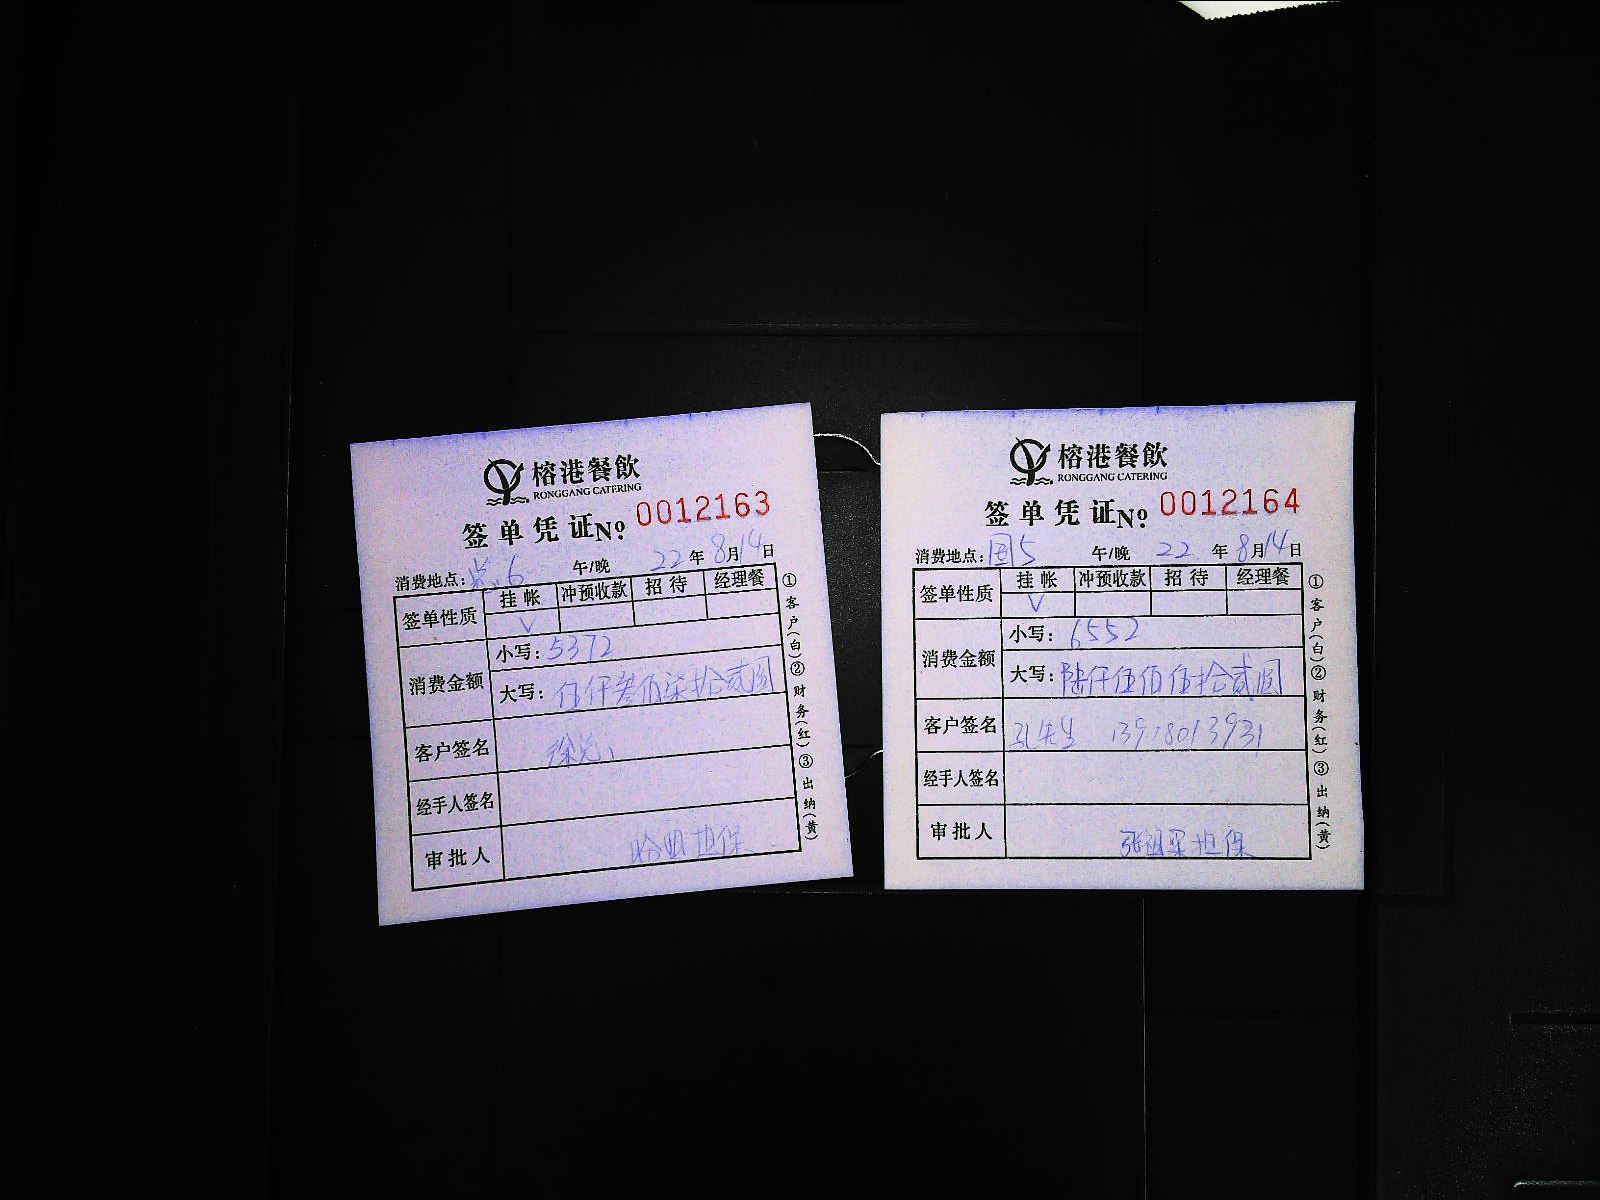 榕港餐飲
RONGGANG CATERING
签单凭证No. 0012163
消费地点: 6 午/晚 22年8月14日
签单性质 挂帐 冲预收款 招待 经理餐
√
消费金额 小写: 5372
大写: 伍仟叁佰柒拾贰圆
客户签名 徐总
经手人签名
审批人 担保
①客户(白)②财务(红)③出纳(黄)
榕港餐飲
RONGGANG CATERING
签单凭证No. 0012164
消费地点: 国5 午/晚 22年8月14日
签单性质 挂帐 冲预收款 招待 经理餐
√
消费金额 小写: 6552
大写: 陆仟伍佰伍拾贰圆
客户签名 孔先生
经手人签名
审批人 担保
①客户(白)②财务(红)③出纳(黄)